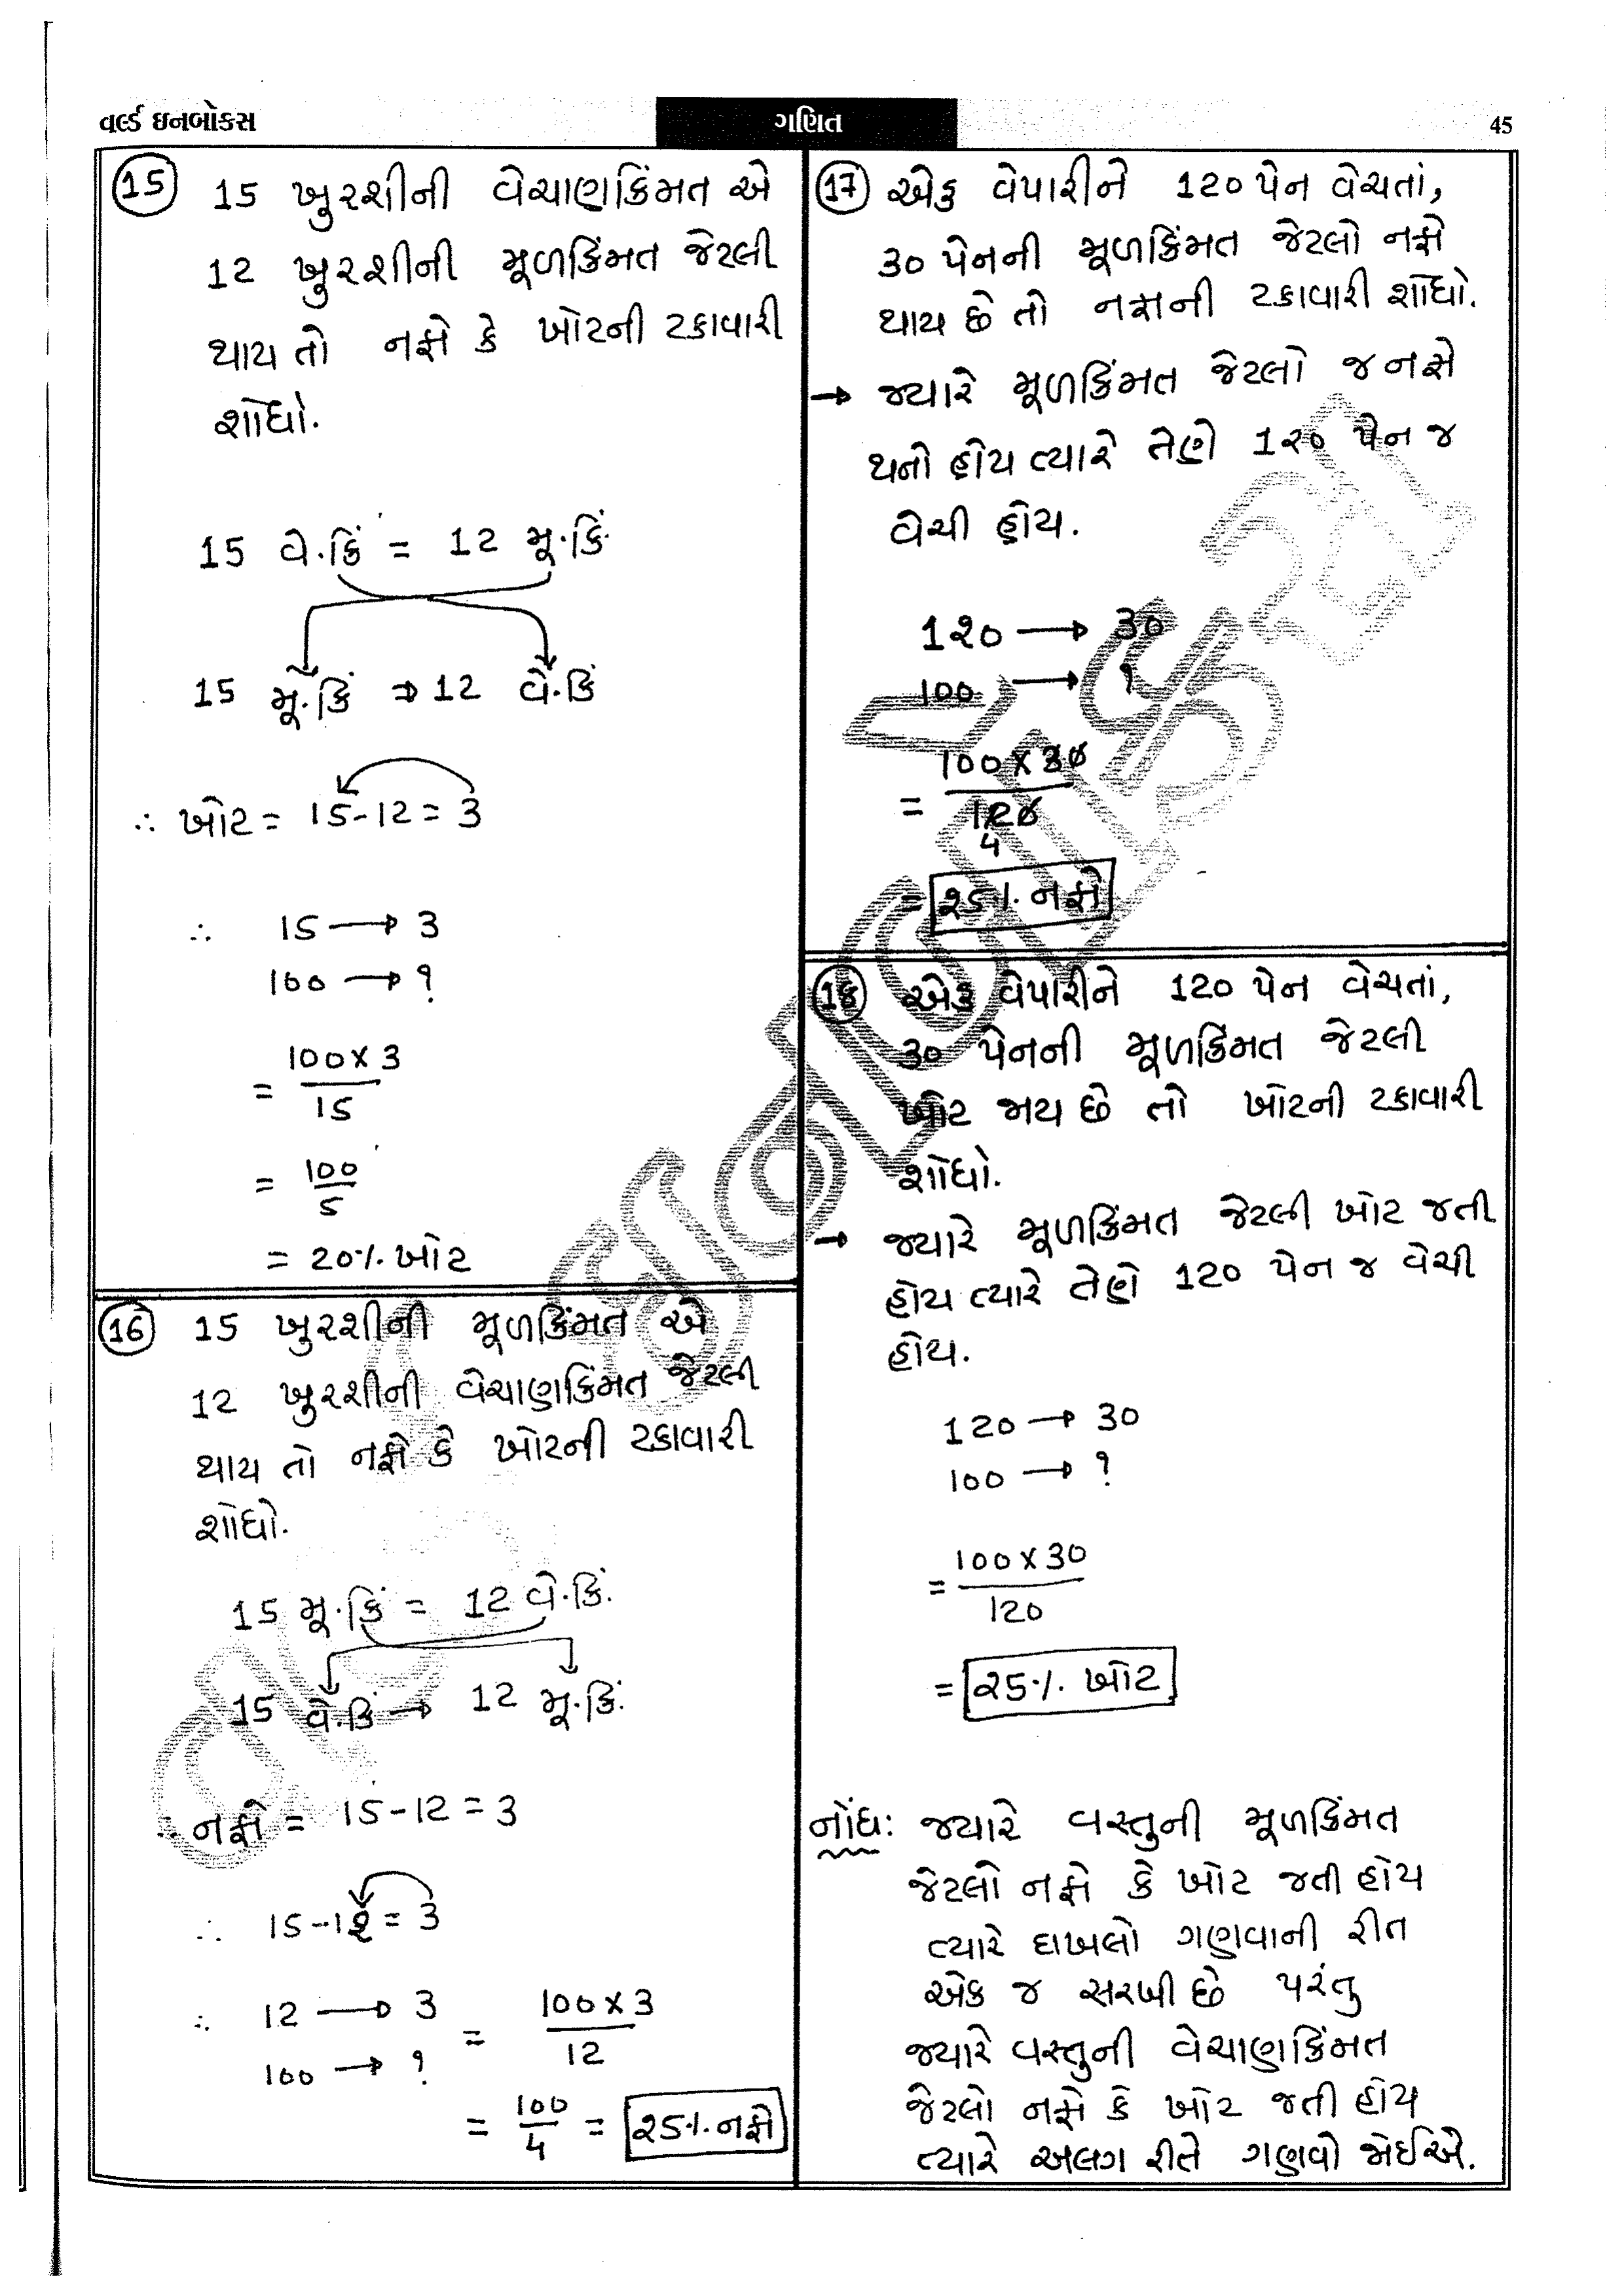 વર્લ્ડ ઇનબોક્સ
ગણિત
45
15 15 ખુરશીની વેચાણકિંમત એ
12 ખુરશીની મૂળકિંમત જેટલી
થાય તો નફો કે ખોટની ટકાવારી
શોધો.
15 વે.કિં = 12 મૂ.કિં.
15 મૂ.કિં ⇒ 12 વે.કિં
∴ ખોટ = 15-12 = 3
∴ 15 → 3
100 → ?
= 100 x 3
15
= 100
5
= 20% ખોટ
16 15 ખુરશીની મૂળકિંમત એ
12 ખુરશીની વેચાણકિંમત જેટલી
થાય તો નફો કે ખોટની ટકાવારી
શોધો.
15 મૂ.કિં = 12 વે.કિં.
15 વે.કિં → 12 મૂ.કિં.
∴ નફો = 15-12 = 3
∴ 15-12 = 3
∴ 12 → 3 = 100 x 3
100 → ? 12
= 100 = ૨5% નફો
4
17 એક વેપારીને 120 પેન વેચતાં,
30 પેનની મૂળકિંમત જેટલો નફો
થાય છે તો નફાની ટકાવારી શોધો.
→ જ્યારે મૂળકિંમત જેટલો જ નફો
થનો હોય ત્યારે તેણે 1૨0 પેન જ
વેચી હોય.
1૨0 → 30
100 → ?
= 100 x 30
120
4
= ૨5% નફો
18 એક વેપારીને 120 પેન વેચતાં,
30 પેનની મૂળકિંમત જેટલી
ખોટ જાય છે તો ખોટની ટકાવારી
શોધો.
→ જ્યારે મૂળકિંમત જેટલી ખોટ જતી
હોય ત્યારે તેણે 120 પેન જ વેચી
હોય.
120 → 30
100 → ?
= 100 x 30
120
= ૨5% ખોટ
નોંધ: જ્યારે વસ્તુની મૂળકિંમત
જેટલો નફો કે ખોટ જતી હોય
ત્યારે દાખલો ગણવાની રીત
એક જ સરખી છે પરંતુ
જ્યારે વસ્તુની વેચાણકિંમત
જેટલો નફો કે ખોટ જતી હોય
ત્યારે અલગ રીતે ગણવો જોઈએ.